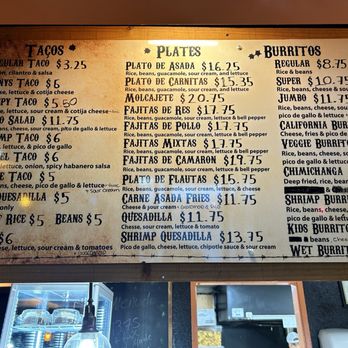 TACOS
REGULAR TACO $3.25
ON, cilantro & salsa
NYS TACO $5
se, lettuce & sour cream & cotija cheese
PY TACO $5.50
, lettuce, sour cream & cotija cheese
O SALAD $11.75
ans, cheese, sour cream, pico de gallo & lettuce
MP TACO $6
e, lettuce & pico de gallo
EL TACO $5
lettuce, onion, spicy habanero salsa
E TACO $5
ans, cheese, pico de gallo & lettuce
UESADILLA $5
only
RICE $5 BEANS $5
$6
se, lettuce, sour cream & tomatoes
PLATES
PLATO DE ASADA $16.25
Rice, beans, guacamole, sour cream, and lettuce
PLATO DE CARNITAS $15.35
Rice, beans, guacamole, sour cream and lettuce
MOLCAJETE $20.75
FAJITAS DE RES $17.75
Rice, beans, guacamole, sour cream, lettuce & bell pepper
FAJITAS DE POLLO $17.75
Rice, beans, guacamole, sour cream, lettuce & bell pepper
FAJITAS MIXTAS $17.75
Rice, beans, guacamole, sour cream, lettuce & bell pepper
FAJITAS DE CAMARON $19.75
Rice, beans, guacamole, sour cream, lettuce & bell pepper
PLATO DE FLAUTAS $15.75
Rice, beans, guacamole, sour cream, lettuce, & cheese
CARNE ASADA FRIES $11.75
Cheese & sour cream
QUESADILLA $11.75
Cheese, sour cream, lettuce & tomato
SHRIMP QUESADILLA $13.75
Pico de gallo, cheese, lettuce, chipotle sauce & sour cream
BURRITOS
REGULAR $8.75
Rice & beans
SUPER $10.75
Rice, beans, cheese, sour
JUMBO $11.75
pico de gallo & lettuce
CALIFORNIA BUR
Cheese, fries & pico de
VEGGIE BURRIT
pico de gallo & lettuce
CHIMICHANGA
Deep fried, rice, beans
SHRIMP BURR
Rice, beans, cheese
pico de gallo & lettuce
KIDS BURRITO
& beans
WET BURRIT